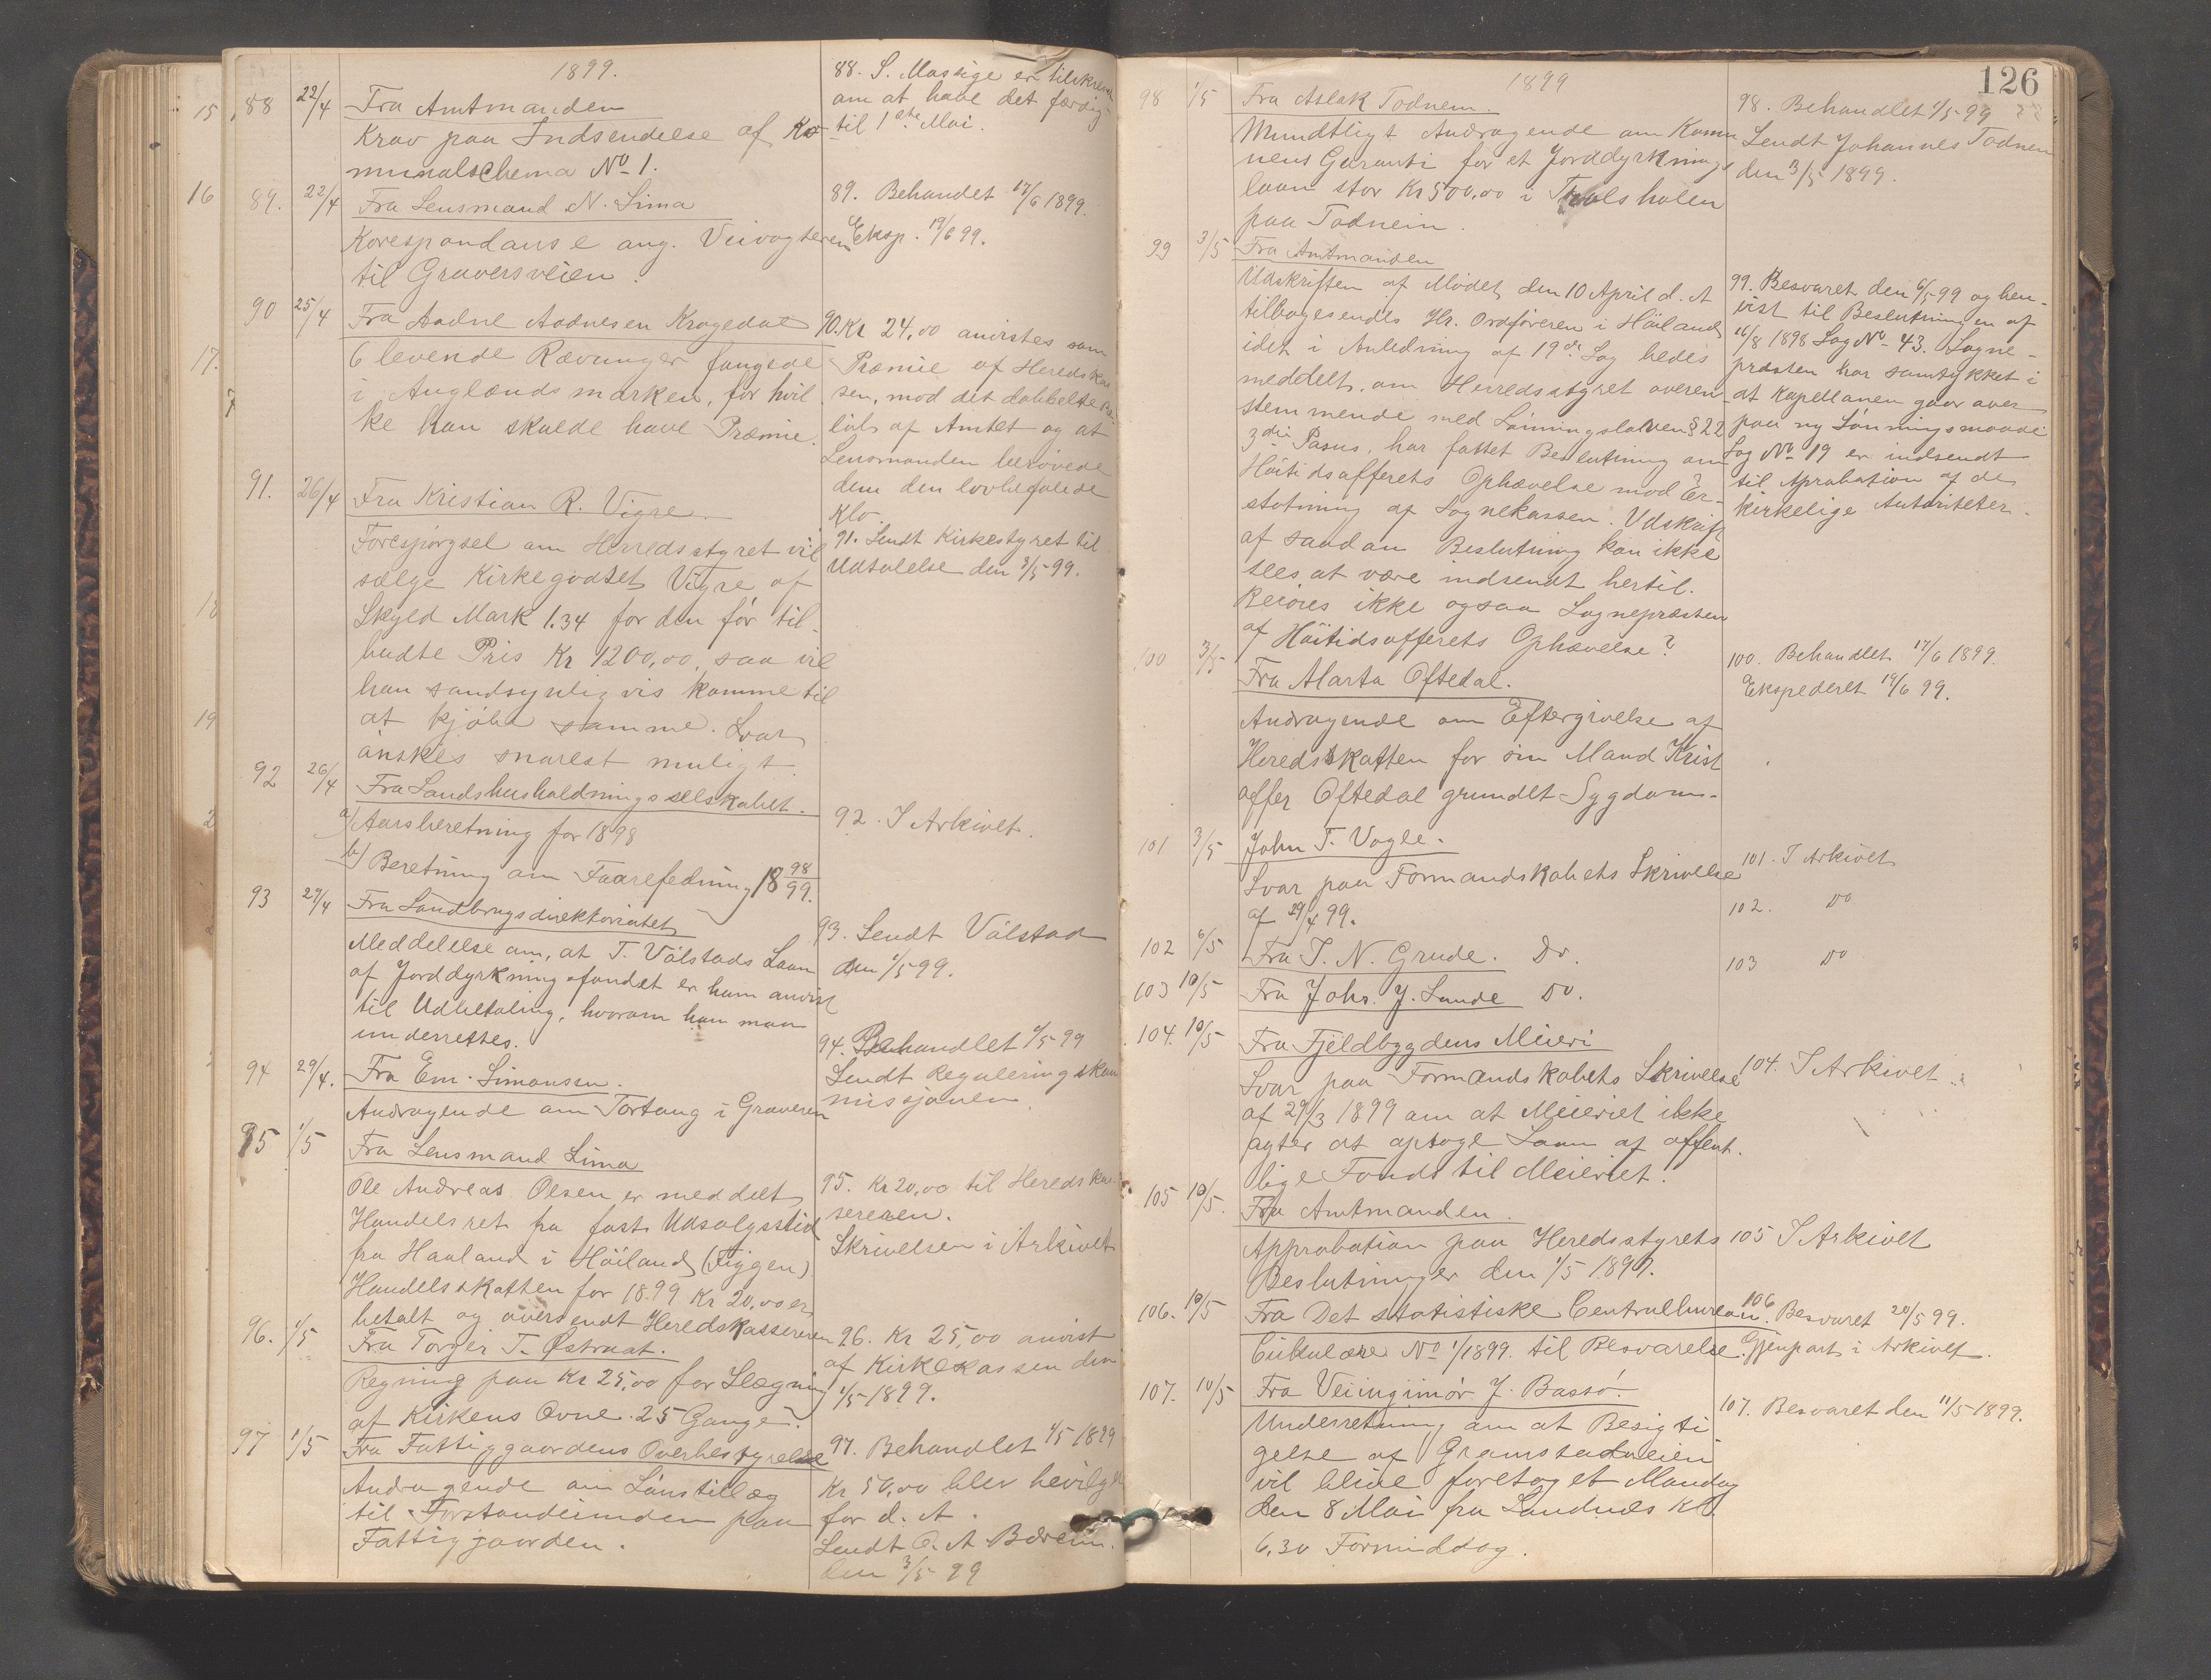 1899.
88 22/4 Fra Amtmanden
Krav paa Indsendelse af Ko-
munalschema No 1.
88. S. Massige er tilskreven
om at have det færdig
til 1ste Mai.
89. 22/4 Fra Lensmand N. Lima
Korespondanse ang. Veivogteren
til Graversveien.
89. Behandlet 17/6 1899.
Eksp. 19/6 99.
90 25/4 Fra Aadne Aadnesen Kragedal
6 levende Rævunger fangede
i Auglænds marken, for hvil
ke han skulde have Præmie.
90. Kr 24,00 anvistes som
Præmie af Heredskas
sen, mod det dobbelte
af Amtet og at
Lensmanden berøvede
dem den lovbefalede
Klo.
91. 26/4 Fra Kristian R. Vigre.
Forespørgsel om Herredsstyret vil
sælge Kirkegodset Vigre af
Skyld Mark 1.34 for den før til-
budte Pris Kr 1200,00, saa vil
han sandsynligvis komme til
at kjøbe samme. Svar
ønskes snarest muligt.
91. Sendt Kirkestyret til
Udtalelse den 3/5 99.
92 26/4 Fra Landshusholdningsselskabet.
a) Aarsberetning for 1898
b) Beretning om Faarefedning 18 98/99.
92. I Arkivet.
93 29/4 Fra Landbrugsdirektoriatet
Meddelelse om, at T. Vølstads Laan
af Jorddyrkningsfondet er ham anvist
til Udbetaling, hvorom han maa
underrettes.
93. Sendt Vølstad
den 1/5 99.
94 29/4. Fra Em. Simonsen.
Andragende om Tortang i Graveren
94. Behandlet 1/5 99
Sendt Reguleringskom
missjonen
95 1/5 Fra Lensmand Lima
Ole Andreas Olsen er meddelt
Handelsret fra fast Udsalgssted
fra Haaland i Høiland (Figgen)
Handelsskatten for 1899 Kr 20,00 er
betalt og oversendt Heredskassereren
95. Kr 20,00 til Heredskas-
sereren.
Skrivelsen i Arkivet
96. 1/5 Fra Torger T. Østraat.
Regning paa Kr 25,00 for Lægning
af Kirkens Ovne 25 Gange.
96. Kr 25,00 anvist
af Kirkekassen den
1/5 1899.
97 1/5 Fra Fattiggaardens Overbestyrelse
Andragende om Lønstillæg
til Forstanderinden paa
Fattiggaarden.
97. Behandlet 1/5 1899
Kr 50,00 blev bevilget
for d. A.
Sendt O. A. Bæreim.
den 3/5 99
126
1899
98 1/5 Fra Aslak Todnem.
Mundtligt Andragende om Kommu
nens Garanti for et Jorddyrknings
laan stor Kr 500,00 i
paa Todneim.
98. Behandlet 1/5 99
Sendt Johannes Todnem
den 3/5 1899.
99 3/5 Fra Amtmanden
Udskriften af Mødet den 10 April d. A
tilbagesendes Hr. Ordføreren i Høiland
idet i Anledning af 19de Sag bedes
meddelt, om Herredsstyret overen-
stemmende med Lønningsloven § 22
3die Pasus, har fattet Beslutning om
Høitidsofferets Ophævelse mod Er-
statning af Sognekassen. Udskrift
af saadan Beslutning kan ikke
sees, at være indsendt hertil.
Beiøres ikke ogsaa Sognepræsten
af Høitidsofferets Ophævelse?
99. Besvaret den 6/5 99 og hen-
vist til Beslutningen af
16/8 1898 Sag No 43. Sogne-
præsten har samtykket i
at Kapellanen gaar over
paa ny Lønningsmaade
Sag No 19 er indsendt
til Aprobation af de
kirkelige Autoriteter.
100 3/5 Fra Marta Oftedal.
Andragende om Eftergivelse af
Heredsskatten for sin Mand Krist
offer Oftedal grundet Sygdom.
100. Behandlet 17/6 1899.
Ekspederet 19/6 99.
101 3/5 John T. Vagle.
Svar paa Formandskabets Skrivelse
af 29/4 99.
101. I Arkivet
102 6/5 Fra T. N. Grude. Do.
102. Do
103 10/5 Fra Johs. J. Lunde Do.
103 Do
104. 10/5 Fra Fjeldbygdens Meieri
Svar paa Formandskabets Skrivelse
af 29/3 1899 om at Meieriet ikke
agter at optage Laan af offent-
lige Fonds til Meieriet.
104. I Arkivet
105 10/5. Fra Amtmanden.
Approbation paa Heredsstyrets
Beslutninger den 1/5 1899.
105 I Arkivet
106. 10/5 Fra Det statistiske Centralbureau.
Cirkulære No 1/1899. til Besvarelse.
106. Besvaret 20/5 99.
Gjenpart i Arkivet.
107. 10/5 Fra Veiinginiør J. Bassø.
Underretning om at Besigti
gelse af Gramstadveien
vil blive foretaget Mandag
den 8 Mai fra Sandnes kl.
6,30 Formiddag.
107. Besvaret den 11/5 1899.